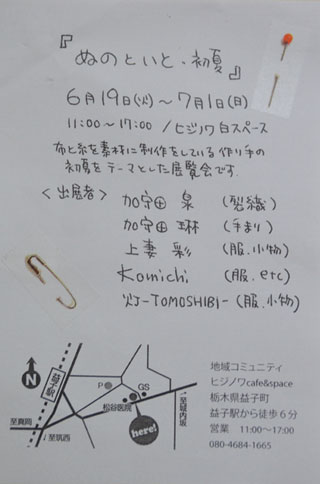 『ぬのといと、初夏』
6月19日(火)〜7月1日(日)
11:00〜17:00 / ヒジノワ 白スペース
布と糸を素材に制作をしている作り手の
初夏をテーマとした展覧会です.
<出展者> 加守田 泉 (裂織)
加守田 琳 (手まり)
上妻 彩 (服.小物)
Komichi (服.etc)
灯-TOMOSHIBI- (服.小物)
N
益子駅
P
GS
松谷医院
here!
至真岡
至筑西
至城内坂
地域コミュニティ
ヒジノワcafe&space
栃木県益子町
益子駅から徒歩6分
営業 11:00〜17:00
080-4684-1665